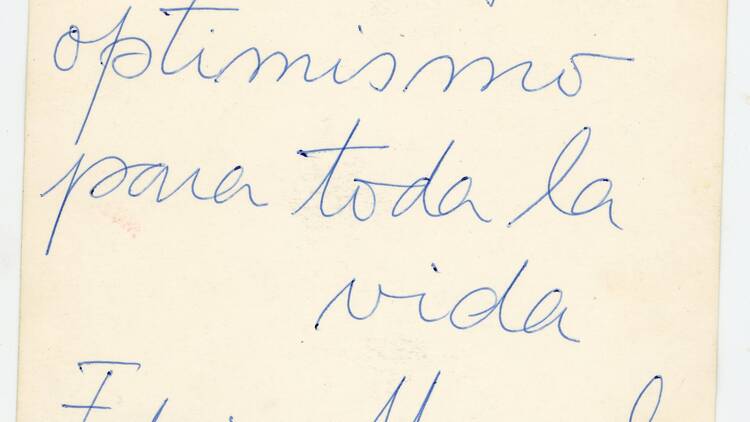 optimismo
para toda la
vida